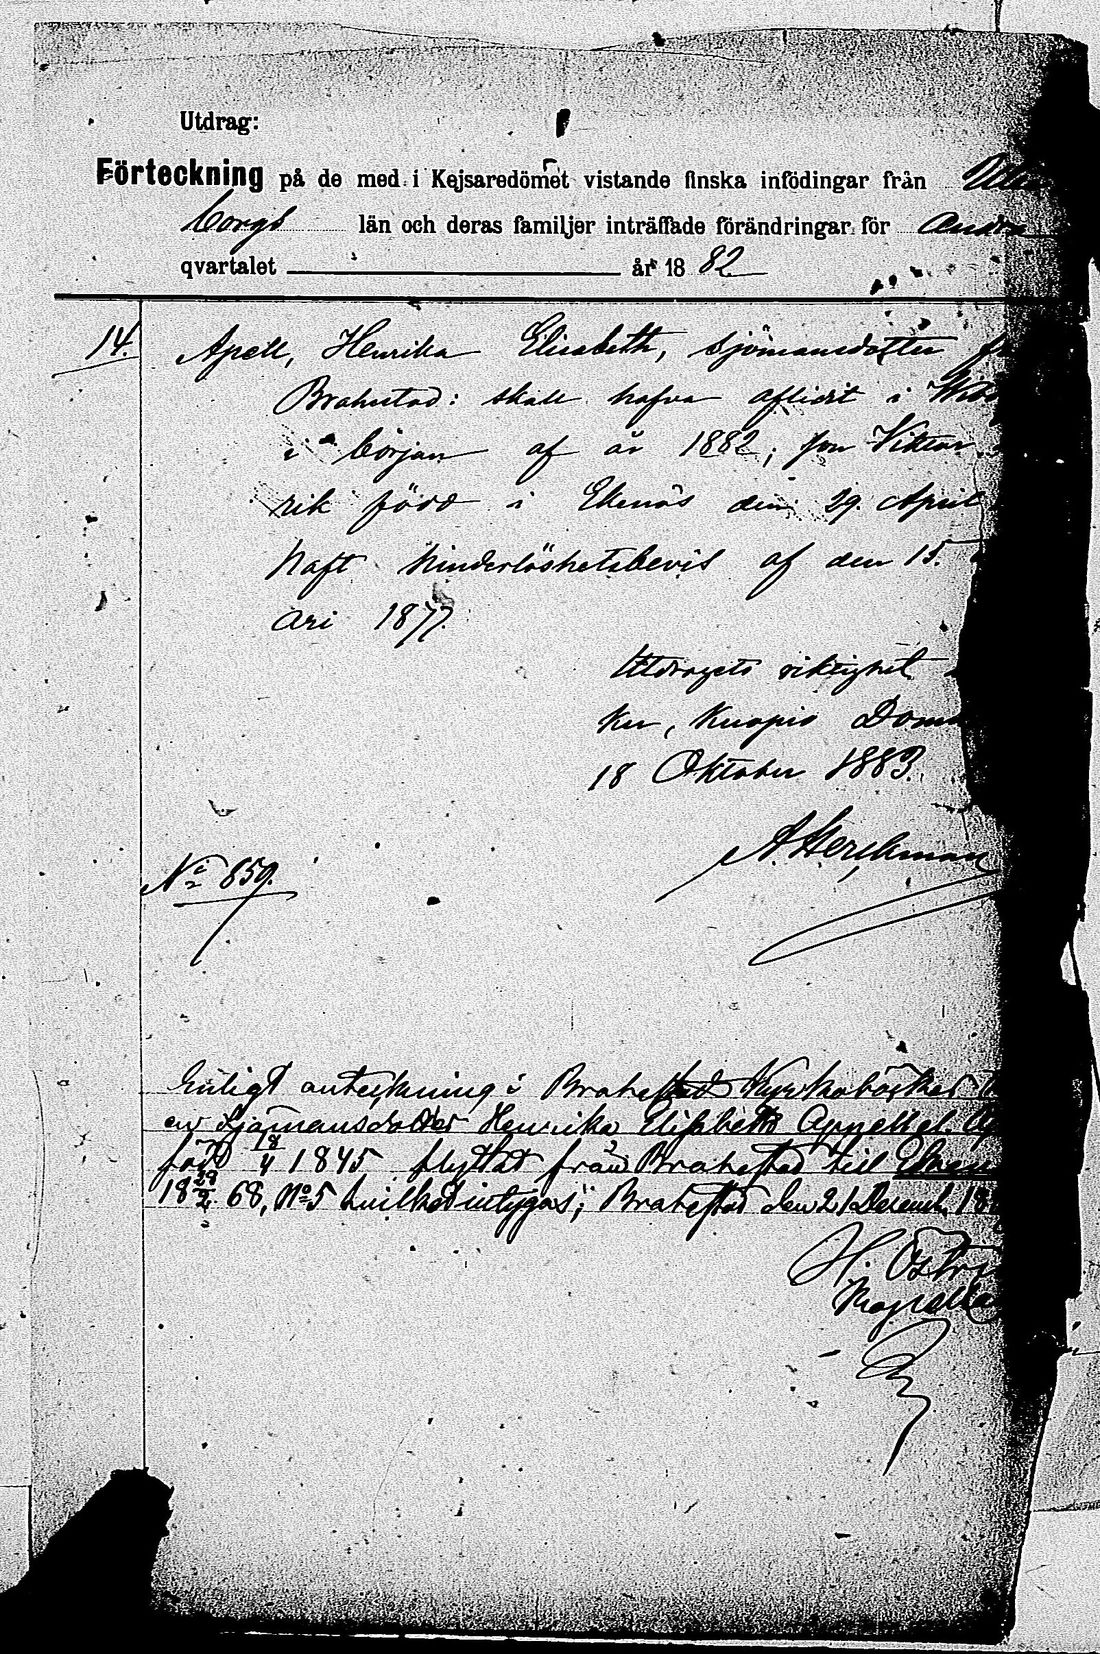 Utdrag:
Förteckning på de med i Kejsaredömet vistande finska infödingar från Ulea
borgs län och deras familjer inträffade förändringar för Andra
qvartalet år 1882
14. Apell, Henrika Elisabeth, sjömansdotter
Brahestad: skall hafva aflidit i
i början af år 1882; son Viktor
rik född i Ekenäs den 29 April
haft hinderlöshetsbevis af den 15.
ari 1877.
Utdragets riktighet
ker, Kuopio Dom
18 Oktober 1883.
A. Herckman
No 859.
Enligt anteckning i Brahestad Kyrkoböcker
ar Sjömansdotter Henrika Elisabeth Appell
född 18/4 1845 flyttat från Brahestad till Eken
18 29/2 68, No 5 hvilket intygas; Brahestad den 21 Decemb. 18
H. Östr
Kapella